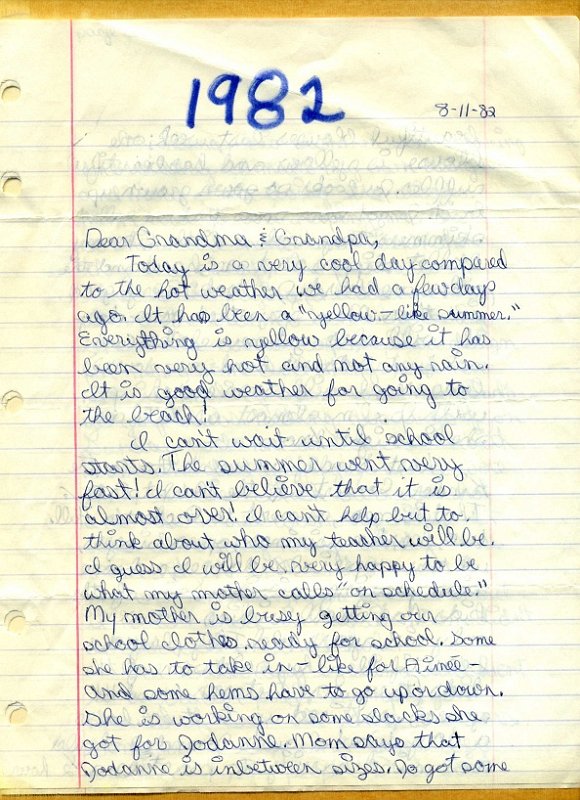 1982
8-11-82
Dear Grandma & Grandpa,
Today is a very cool day compared
to the hot weather we had a few days
ago. It has been a "yellow-like summer."
Everything is yellow because it has
been very hot and not any rain.
It is good weather for going to
the beach!
I can't wait until school
starts. The summer went very
fast! I can't believe that it is
almost over! I can't help but to
think about who my teacher will be.
I guess I will be very happy to be
what my mother calls "on schedule."
My mother is busy getting our
school clothes ready for school. Some
she has to take in - like for Aimée -
and some hems have to go up or down.
She is working on some slacks she
got for Jodanne. Mom says that
Jodanne is inbetween sizes. Jo got some